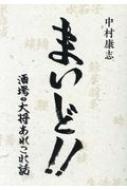 中村康志
まいど!!
酒場の大将あれこれ話